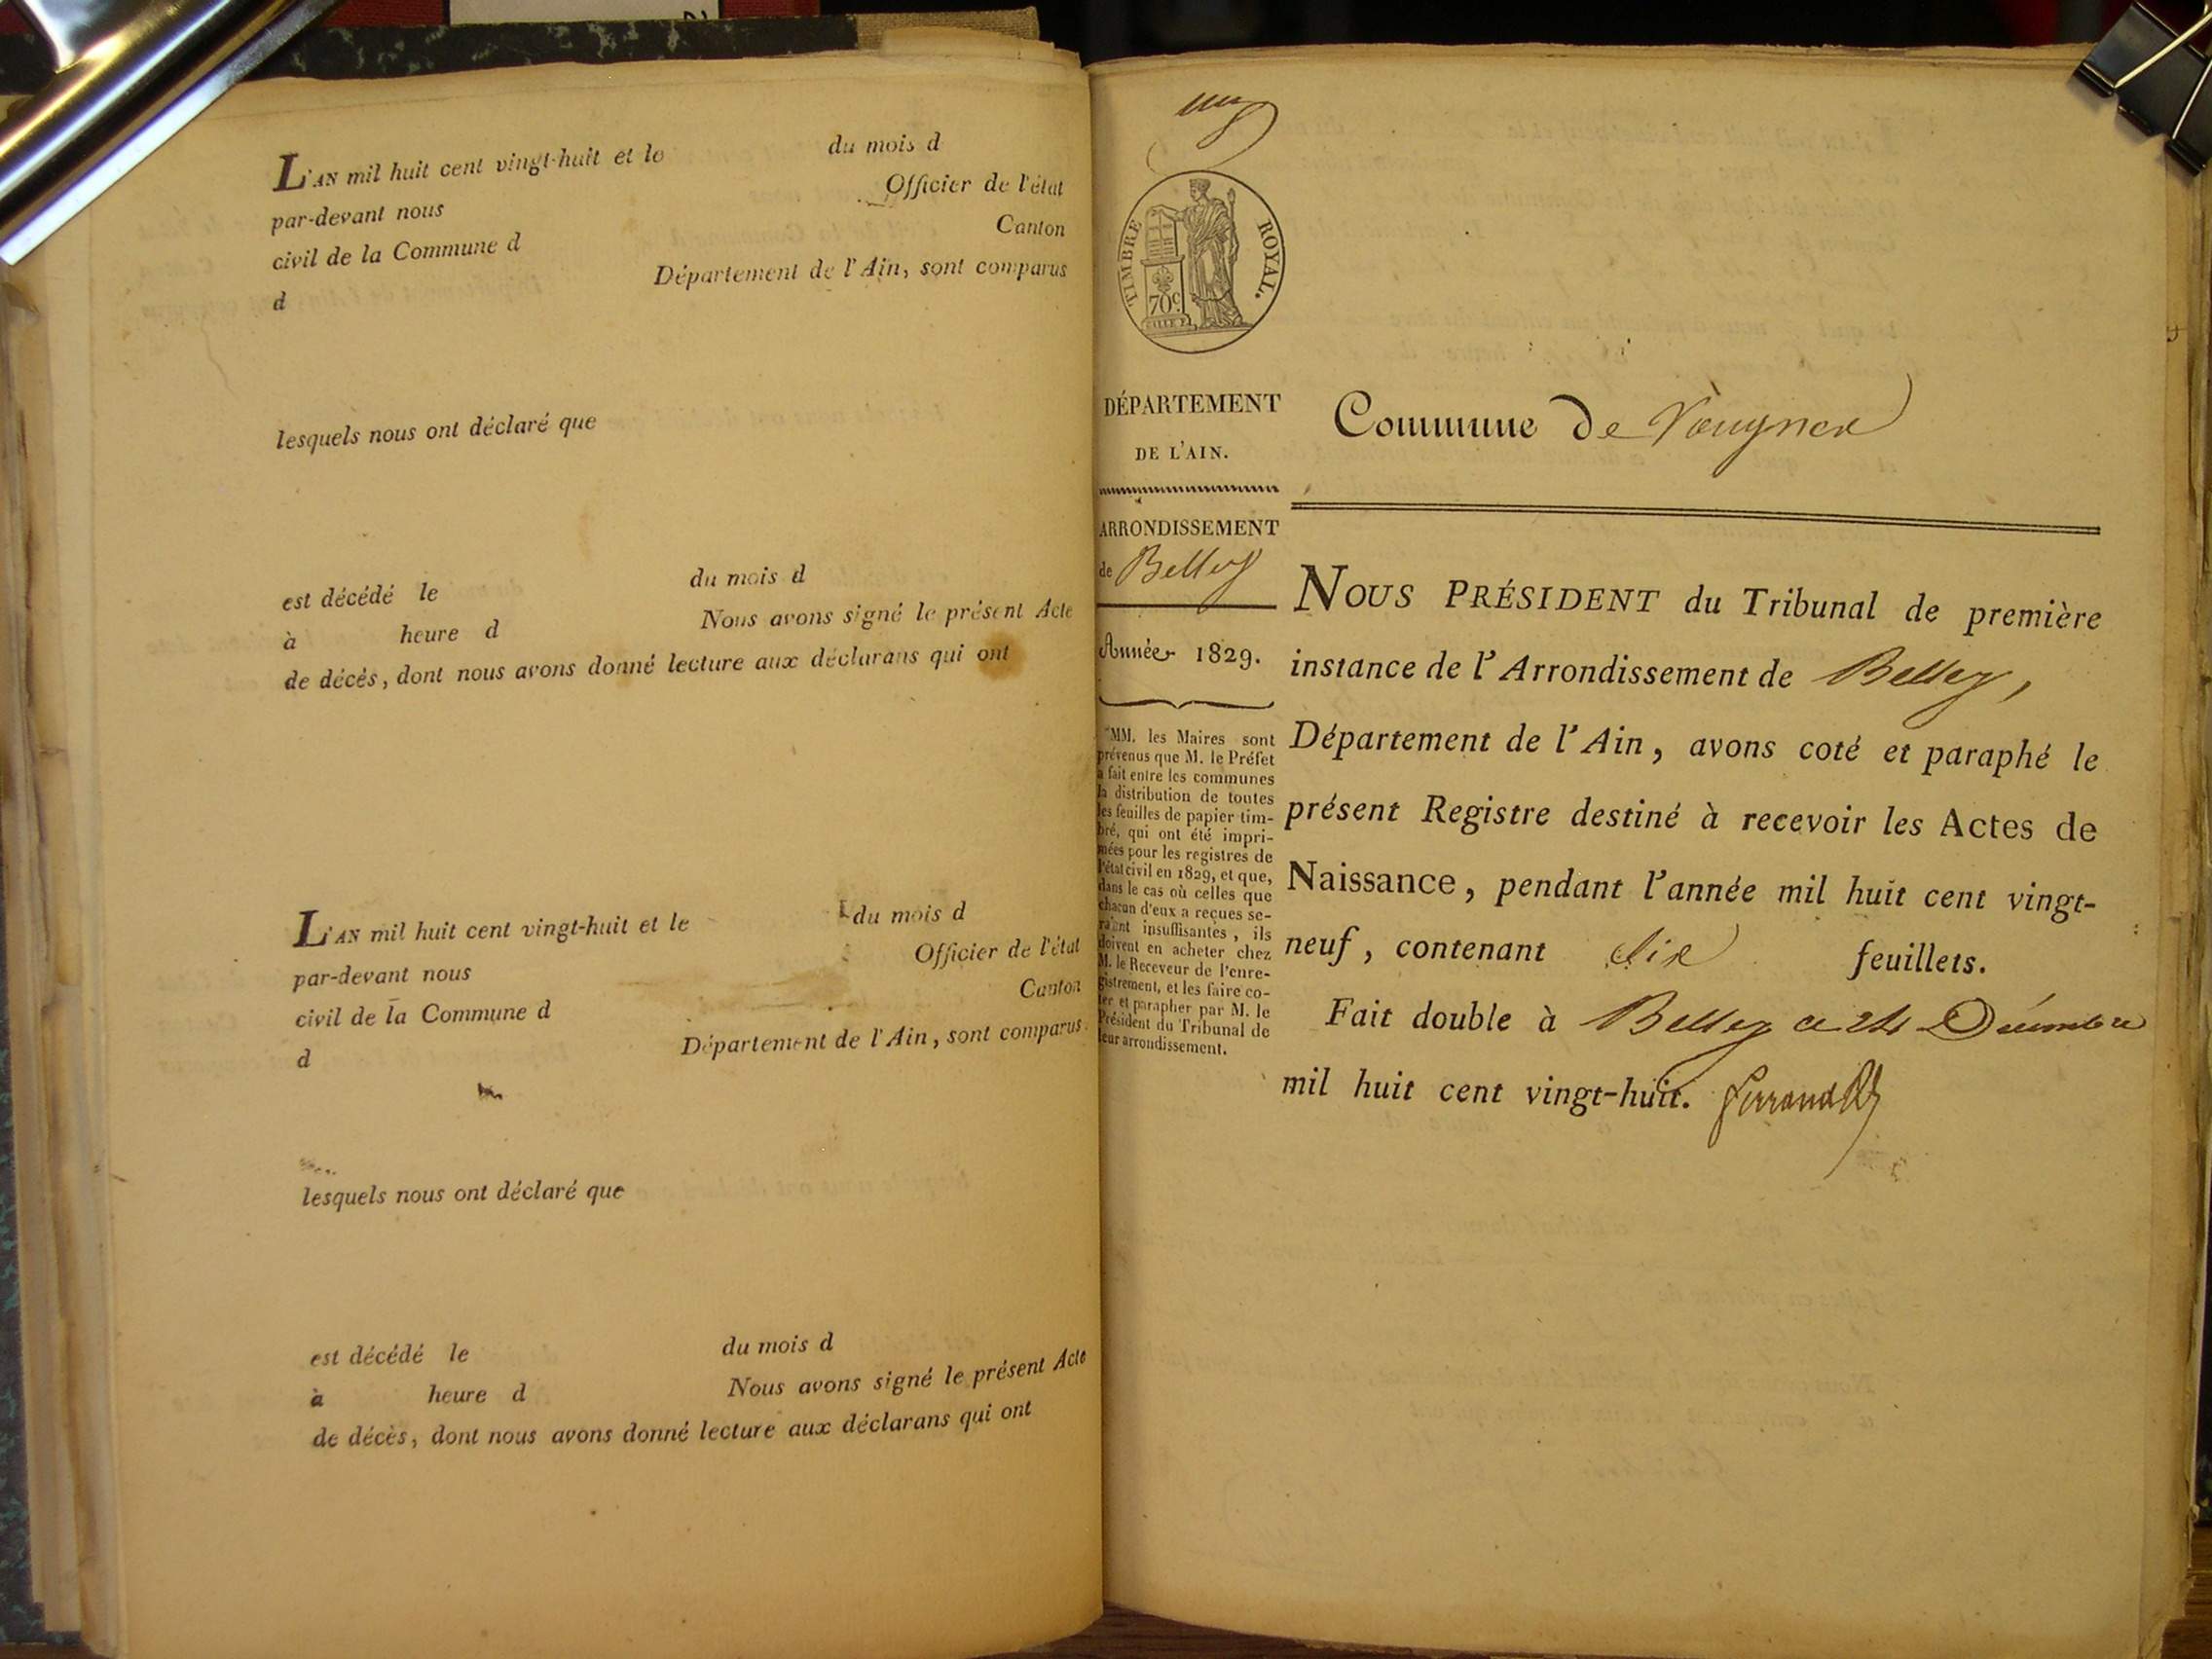 L'AN mil huit cent vingt-huit et le du mois d
par-devant nous Officier de l'état
civil de la Commune d Canton
d Département de l'Ain, sont comparus
lesquels nous ont déclaré que
est décédé le du mois d
à heure d Nous avons signé le présent Acte
de décès, dont nous avons donné lecture aux déclarans qui ont
L'AN mil huit cent vingt-huit et le du mois d
par-devant nous Officier de l'état
civil de la Commune d Canton
d Département de l'Ain, sont comparus
lesquels nous ont déclaré que
est décédé le du mois d
à heure d Nous avons signé le présent Acte
de décès, dont nous avons donné lecture aux déclarans qui ont
TIMBRE ROYAL.
70c
DÉPARTEMENT
DE L'AIN.
ARRONDISSEMENT
de Belley
Année 1829.
MM. les Maires sont
prévenus que M. le Préfet
a fait entre les communes
la distribution de toutes
les feuilles de papier tim-
bré, qui ont été impri-
mées pour les registres de
l'état civil en 1829, et que,
dans le cas où celles que
chacun d'eux a reçues se-
raient insuffisantes, ils
doivent en acheter chez
M. le Receveur de l'enre-
gistrement, et les faire co-
ter et parapher par M. le
Président du Tribunal de
leur arrondissement.
Commune de
NOUS PRÉSIDENT du Tribunal de première
instance de l'Arrondissement de Belley,
Département de l'Ain, avons coté et paraphé le
présent Registre destiné à recevoir les Actes de
Naissance, pendant l'année mil huit cent vingt-
neuf, contenant feuillets.
Fait double à Belley ce 24 Décembre
mil huit cent vingt-huit.